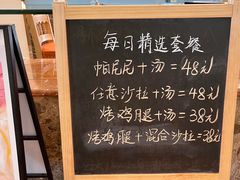 每日精选套餐
帕尼尼+汤=48元
任意沙拉+汤=48元
烤鸡腿+汤=38元
烤鸡腿+混合沙拉=38元